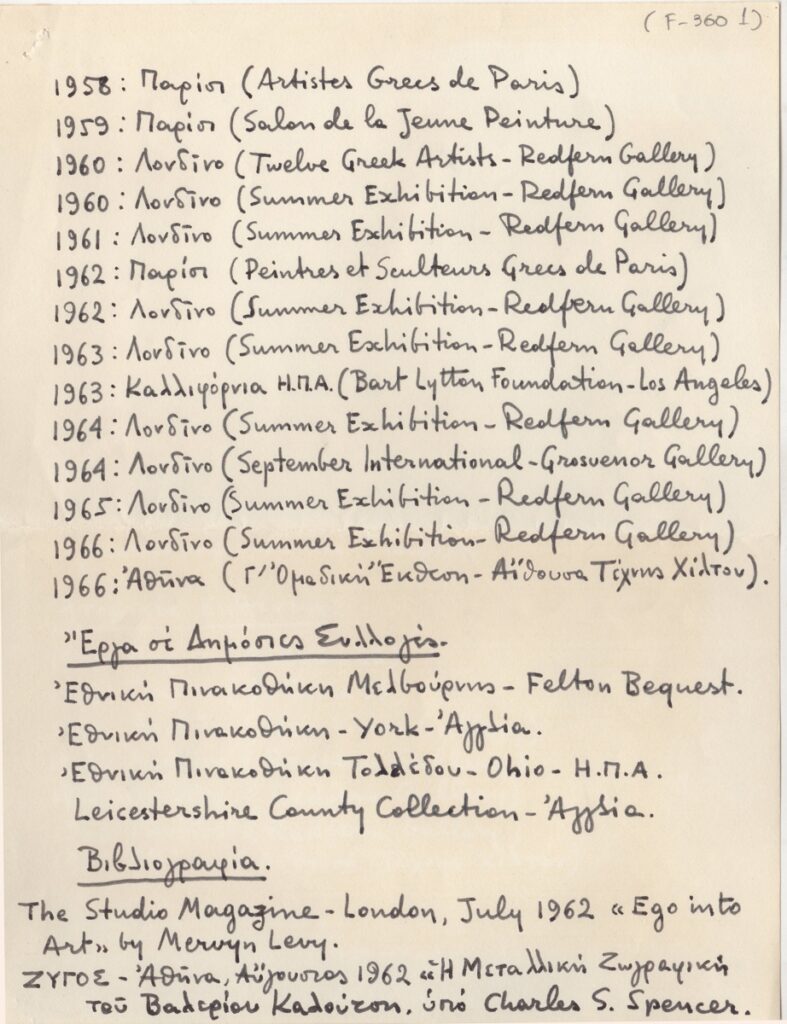 (F-360 1)
1958: Παρίσι (Artistes Grecs de Paris)
1959: Παρίσι (Salon de la Jeune Peinture)
1960: Λονδῖνο (Twelve Greek Artists - Redfern Gallery)
1960: Λονδῖνο (Summer Exhibition - Redfern Gallery)
1961: Λονδῖνο (Summer Exhibition - Redfern Gallery)
1962: Παρίσι (Peintres et Sculteurs Grecs de Paris)
1962: Λονδῖνο (Summer Exhibition - Redfern Gallery)
1963: Λονδῖνο (Summer Exhibition - Redfern Gallery)
1963: Καλλιφόρνια Η.Π.Α. (Bart Lytton Foundation - Los Angeles)
1964: Λονδῖνο (Summer Exhibition - Redfern Gallery)
1964: Λονδῖνο (September International - Grosvenor Gallery)
1965: Λονδῖνο (Summer Exhibition - Redfern Gallery)
1966: Λονδῖνο (Summer Exhibition - Redfern Gallery)
1966: Ἀθῆνα (Γ' Ὁμαδική Ἔκθεση - Αἴθουσα Τέχνης Χίλτον).
Ἔργα σέ Δημόσιες Συλλογές.
Ἐθνική Πινακοθήκη Μελβούρνης - Felton Bequest.
Ἐθνική Πινακοθήκη - York - Ἀγγλία.
Ἐθνική Πινακοθήκη Τολλέδου - Ohio - Η.Π.Α.
Leicestershire County Collection - Ἀγγλία.
Βιβλιογραφία.
The Studio Magazine - London, July 1962 «Ego into
Art» by Mervyn Levy.
ΖΥΓΟΣ - Ἀθῆνα, Αὔγουστος 1962 «Ἡ Μεταλλική Ζωγραφική
τοῦ Βαλερίου Καλούτση. ὑπό Charles S. Spencer.